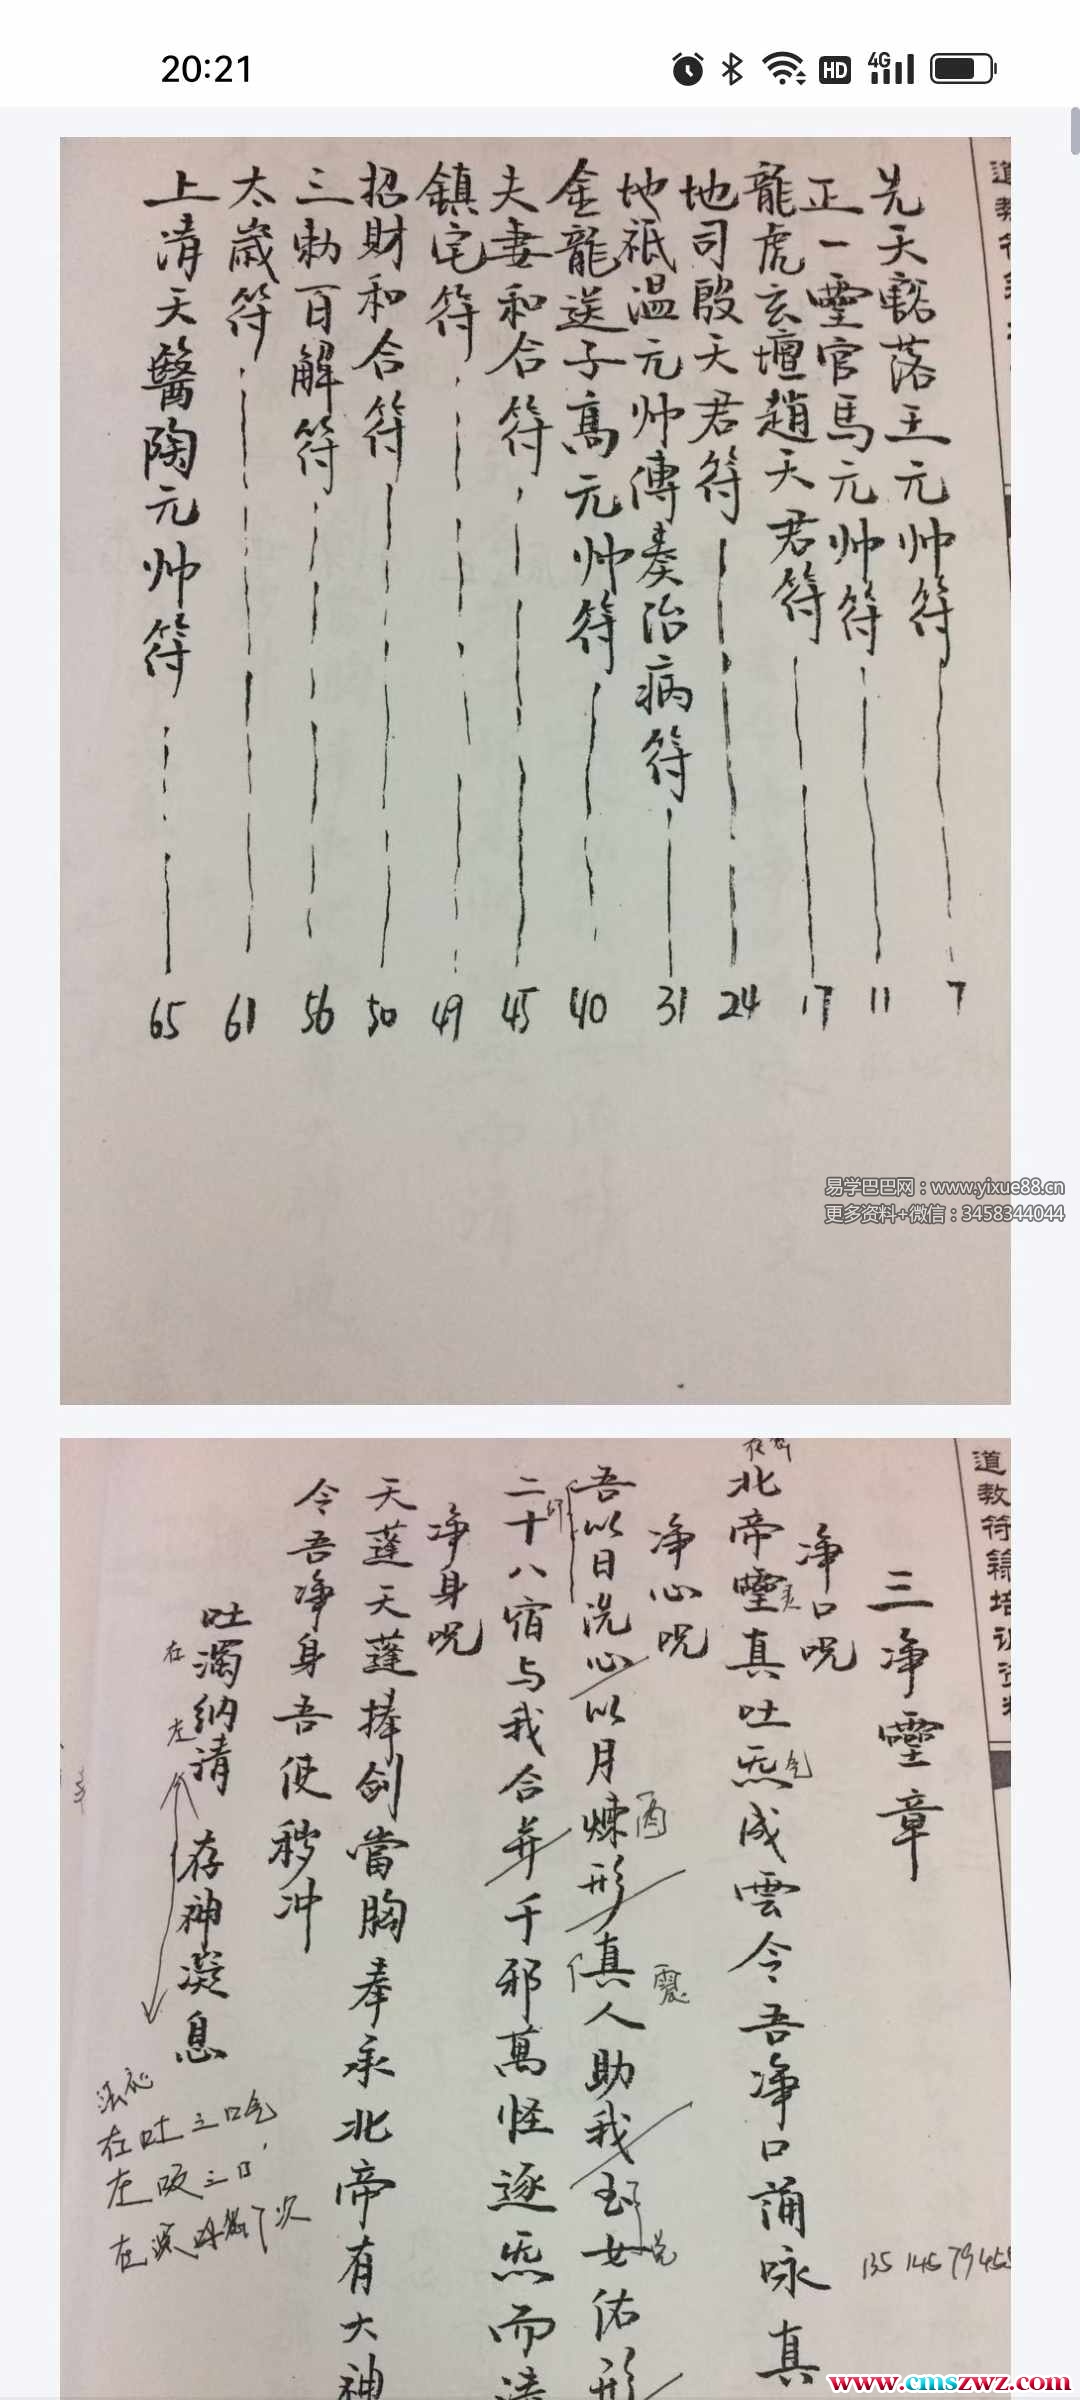 20:21
HD 4G
先天豁落王元帅符 7
正一靈官馬元帅符 11
龍虎玄壇趙天君符 17
地司殷天君符 24
地祇温元帅傳奏治病符 31
金龍送子高元帅符 40
夫妻和合符 45
鎮宅符 49
招財和合符 50
三勅百解符 56
太歲符 61
上清天醫陶元帅符 65
易学巴巴网：www.yixue88.cn
更多资料+微信：3458344044
道教符籙培训资料
三净靈章
净口呪
北帝靈真吐炁成雲令吾净口誦咏真
灵
气
净心呪
吾以日洗心以月煉形真人助我玉女佑形
酉
震
二十八宿与我合并千邪萬怪逐炁而清
印
净身呪
天蓬天蓬捧劍當胸奉承北帝有大神
令吾净身吾使穢冲
吐濁纳清 存神凝息
右
左
右吐三口气
左吸三口
www.cmszwz.com